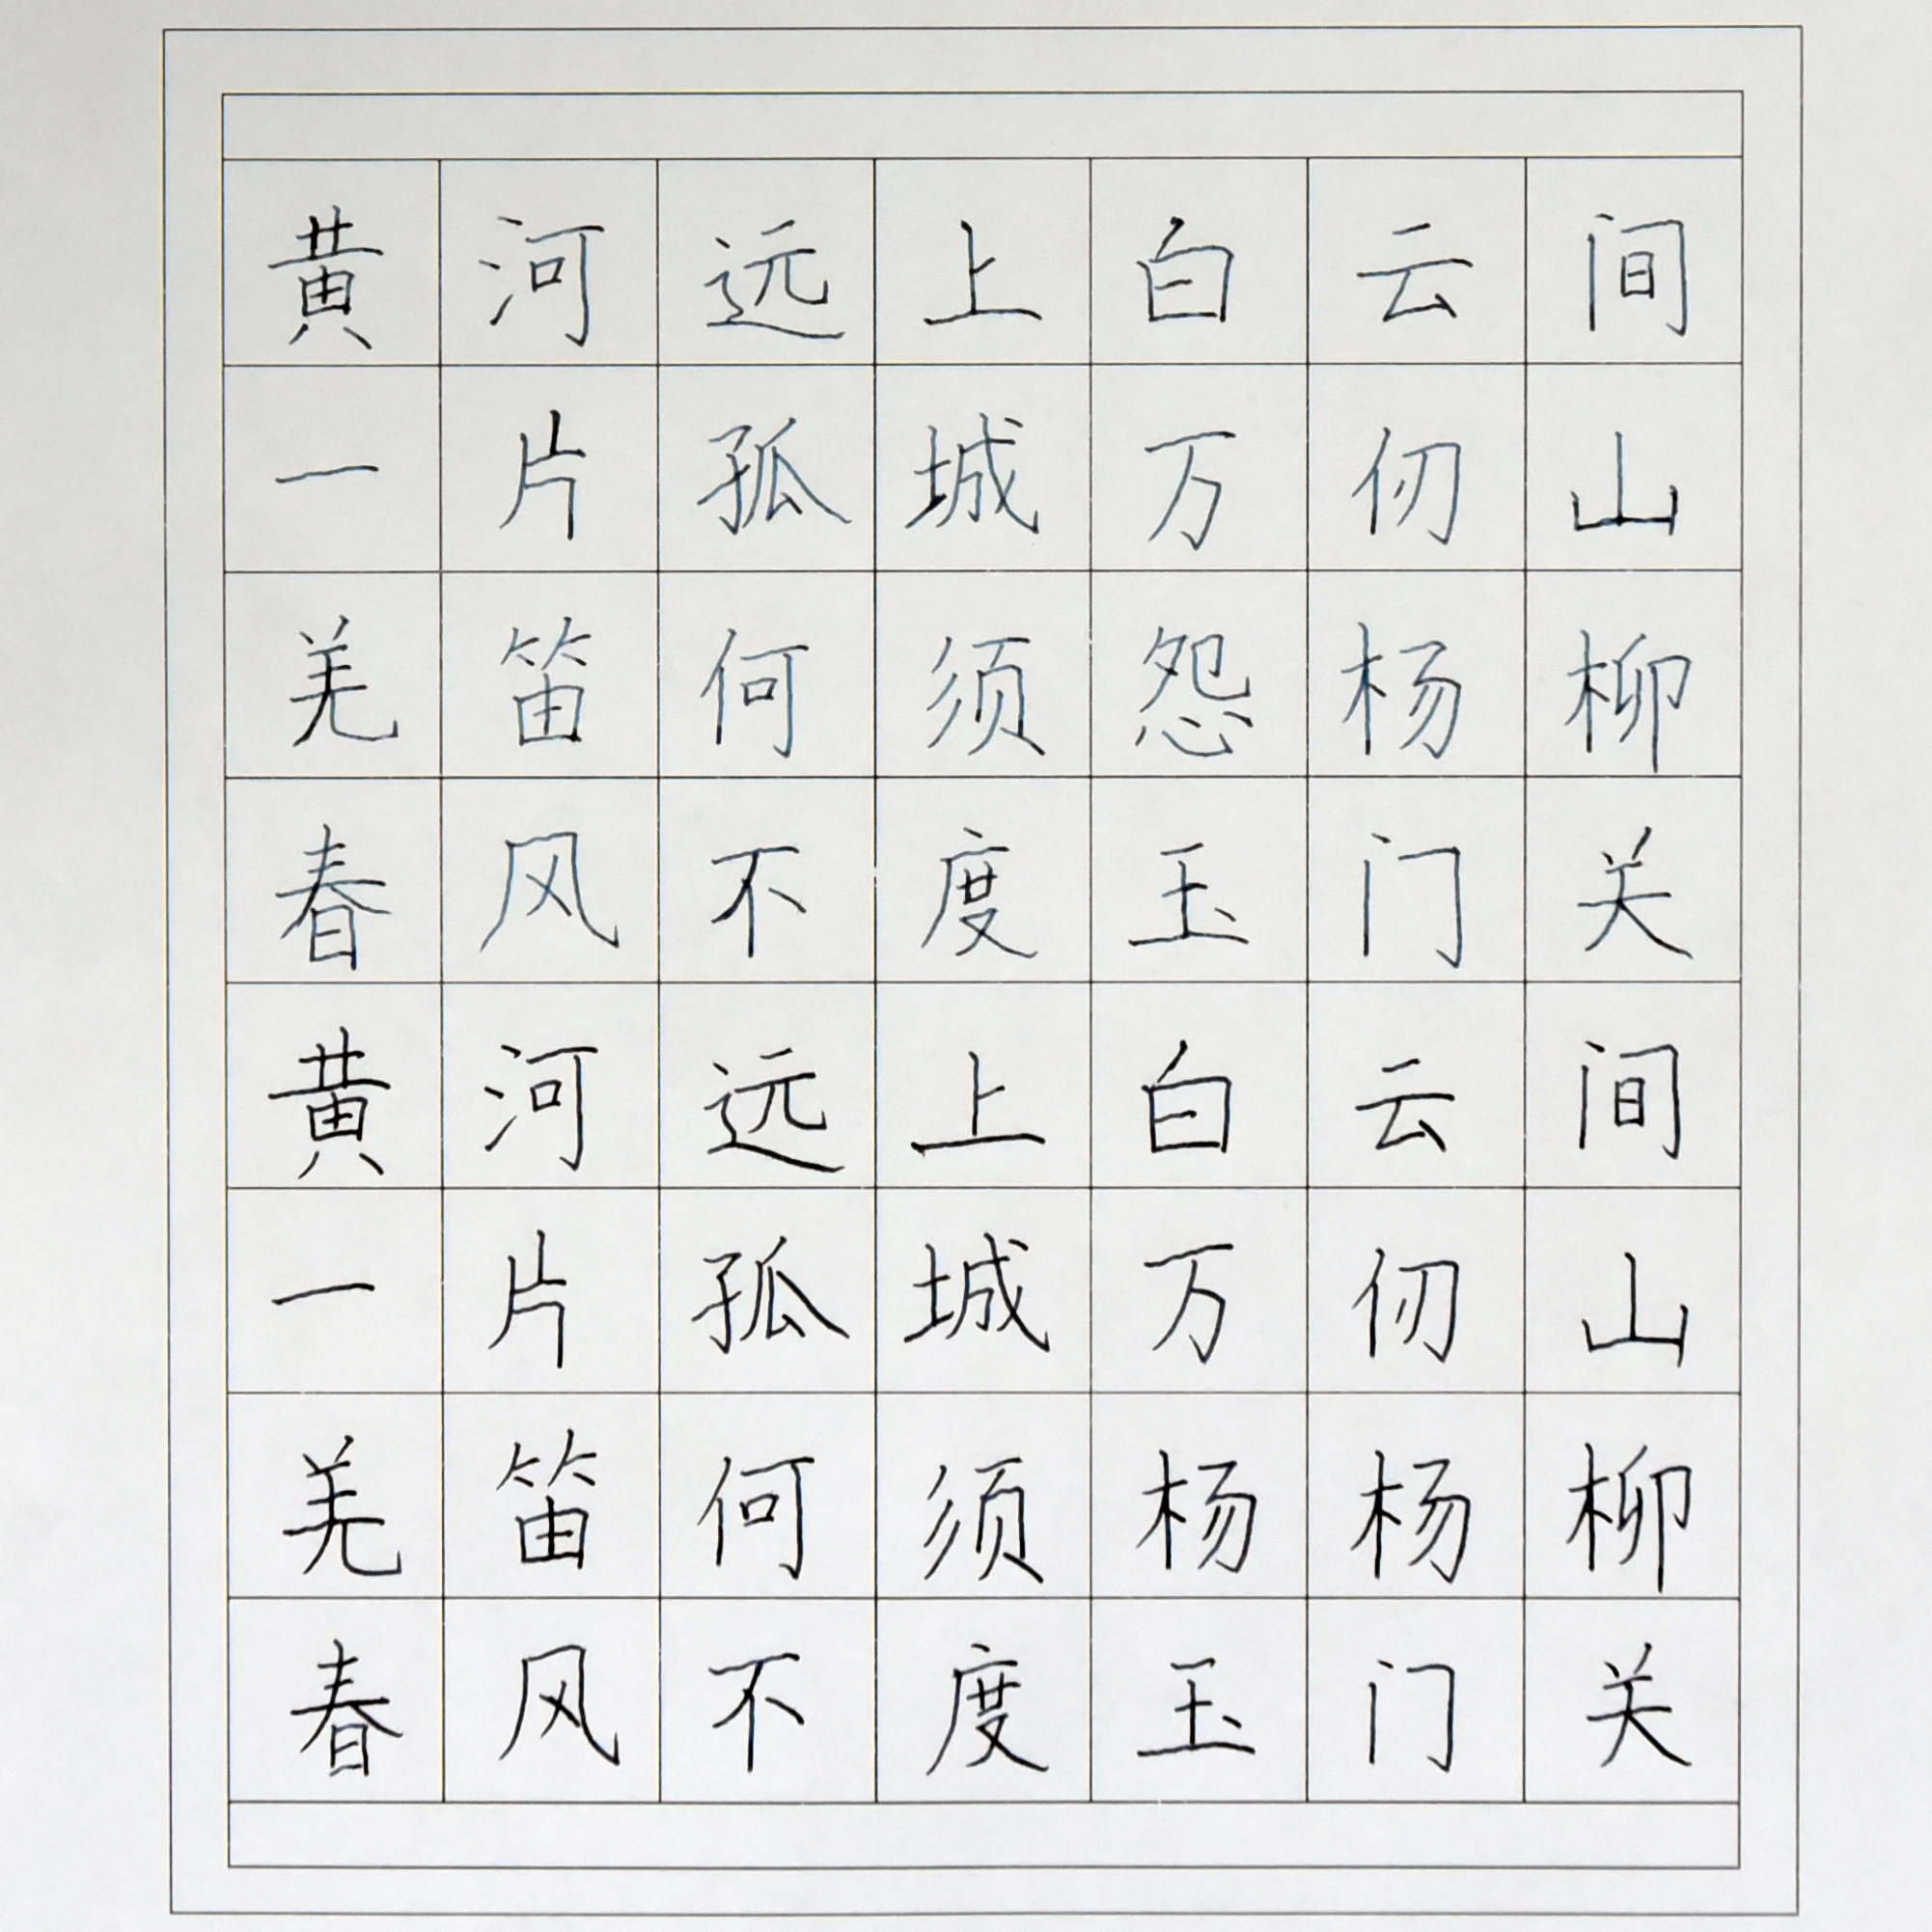 黄河远上白云间
一片孤城万仞山
羌笛何须怨杨柳
春风不度玉门关
黄河远上白云间
一片孤城万仞山
羌笛何须杨杨柳
春风不度玉门关